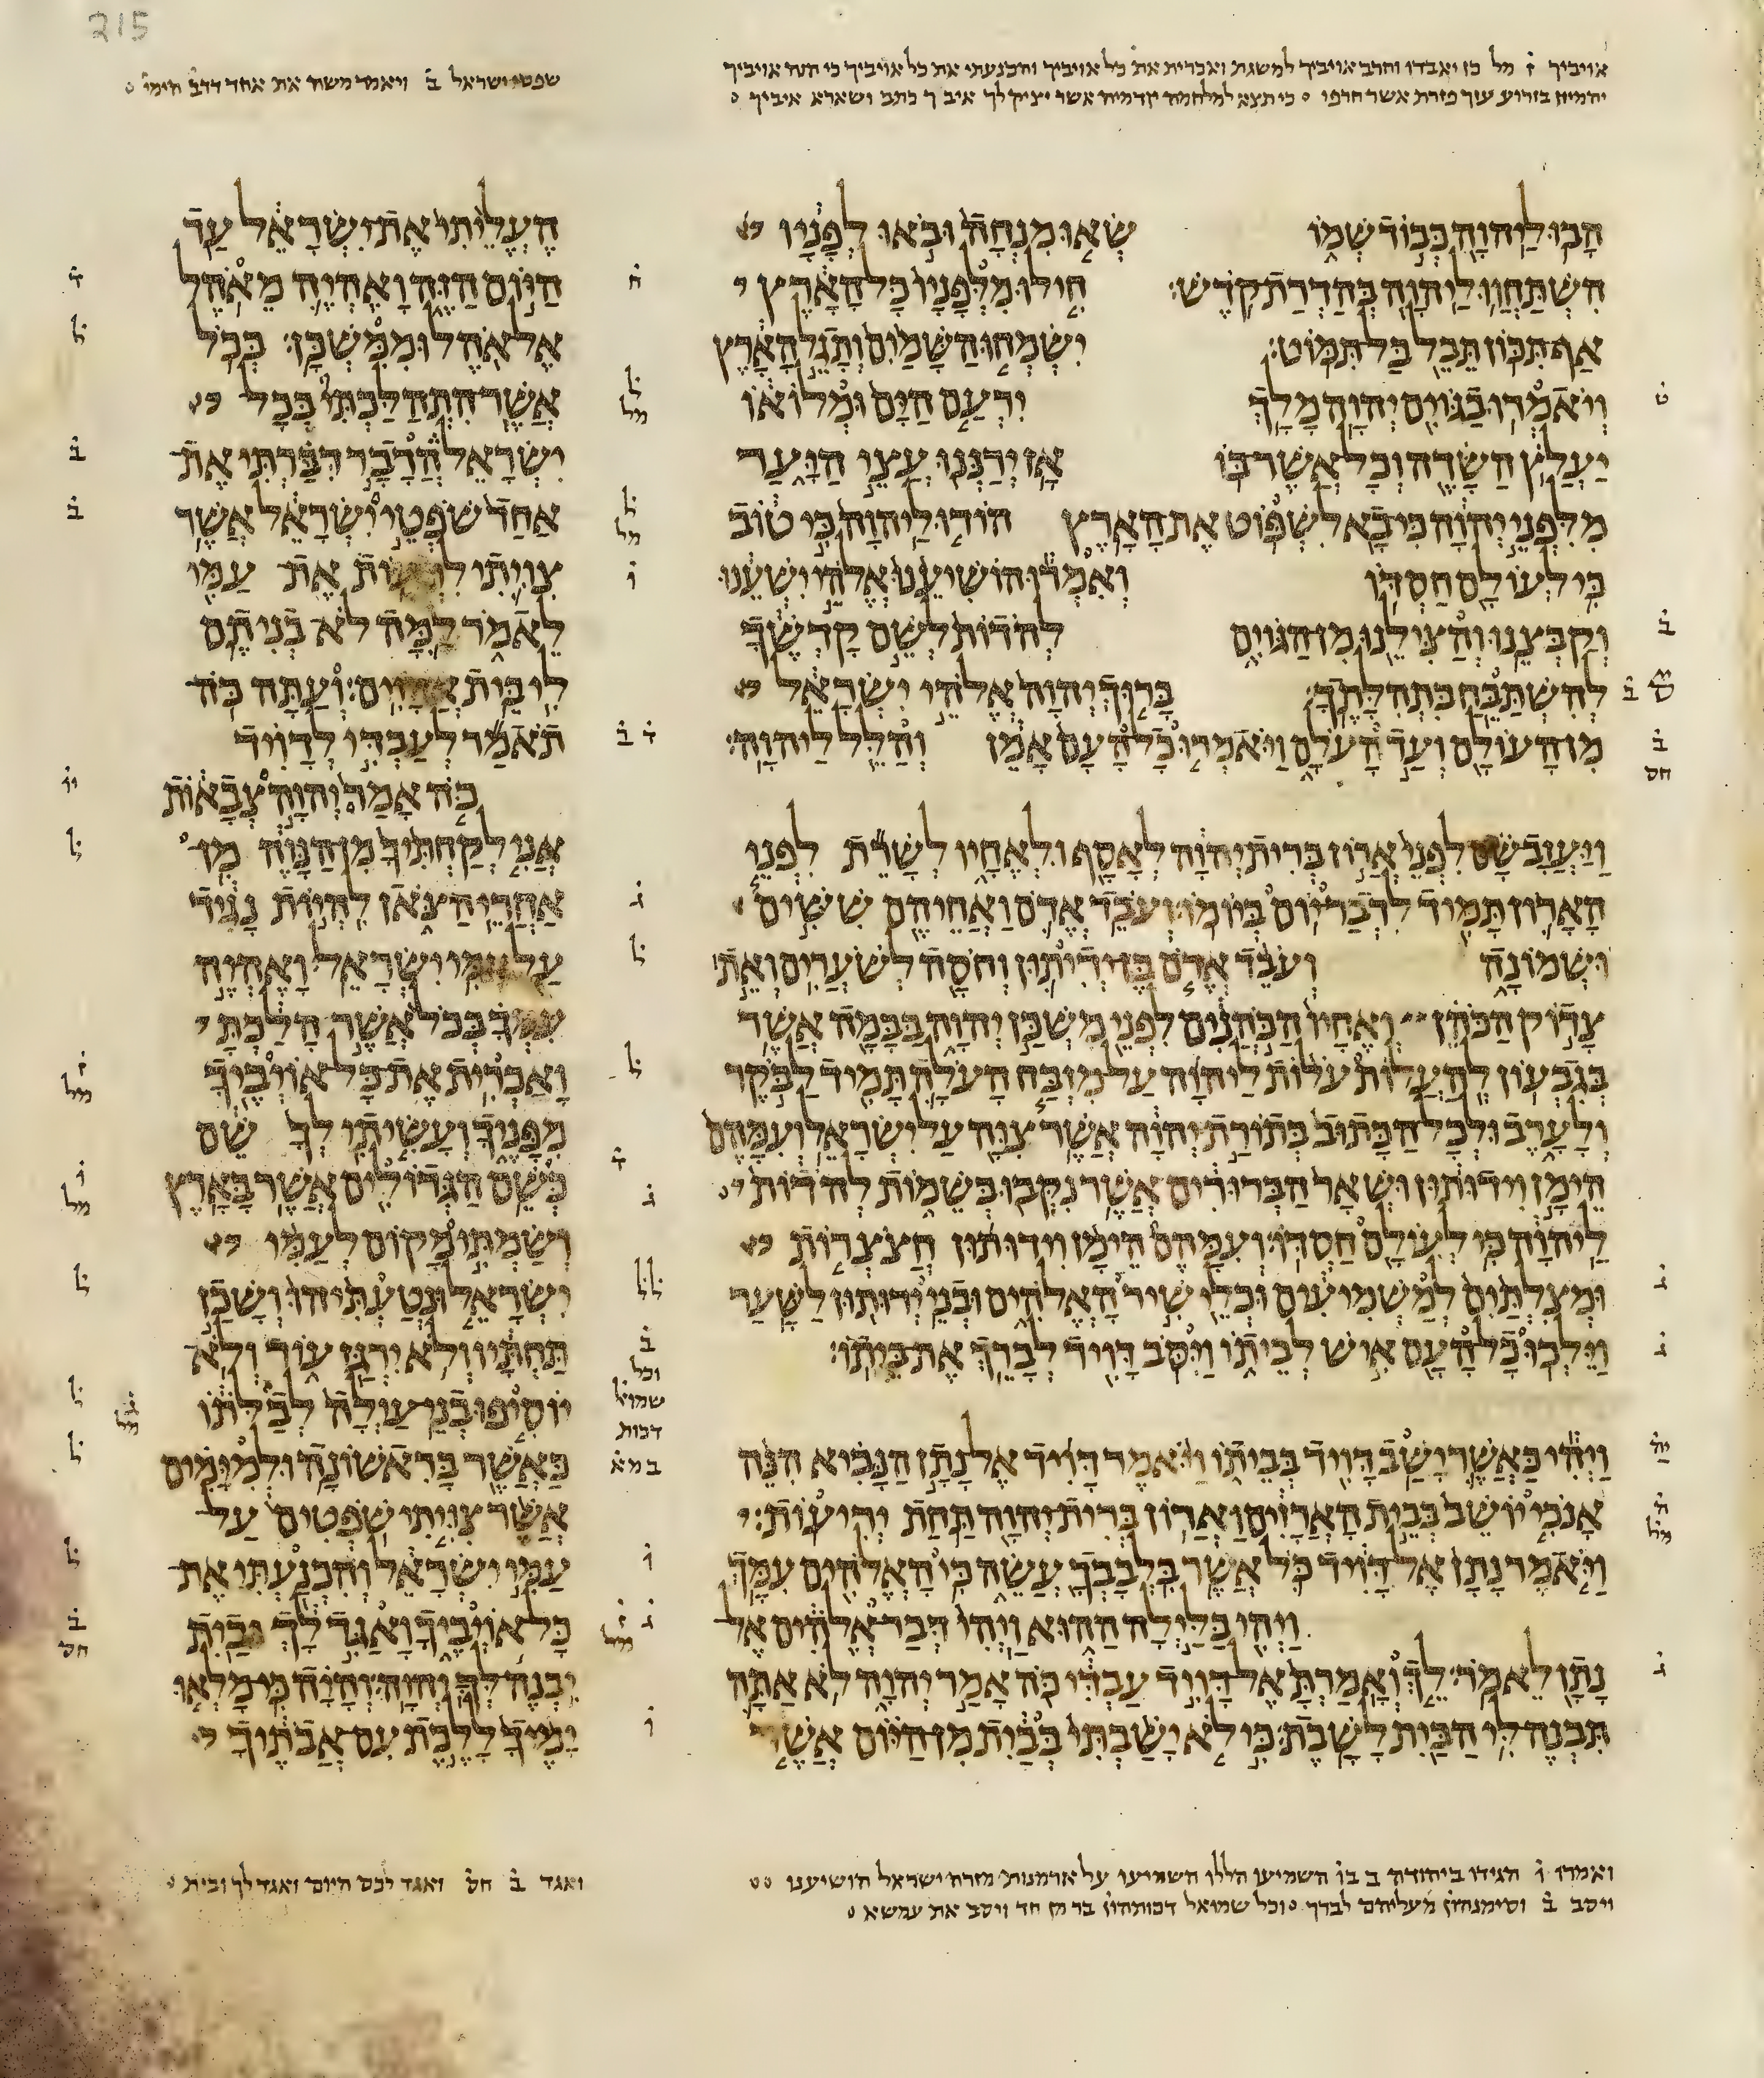 215
אויביך ז מל כן יאבדו וחרב אויביך למשגת ואכרית את כל אויביך והכנעתי את כל אויביך כי הנה אויביך
יהמיון בזרוע עזך פזרת אשר חרפו כי תצא למלחמה קדמיה אשר יציק לך איבך כתב ושארא איביך
הבו ליהוה כבוד שמו שאו מנחה ובאו לפניו
השתחוו ליהוה בהדרת קדש׃ חילו מלפניו כל הארץ
אף תכון תבל בל תמוט׃ ישמחו השמים ותגל הארץ
ויאמרו בגוים יהוה מלך ירעם הים ומלואו
יעלץ השדה וכל אשר בו אז ירננו עצי היער
מלפני יהוה כי בא לשפוט את הארץ הודו ליהוה כי טוב
כי לעולם חסדו ואמרו הושיענו אלהי ישענו
וקבצנו והצילנו מן הגוים להדות לשם קדשך
להשתבח בתהלתך׃ ברוך יהוה אלהי ישראל
מן העולם ועד העלם ויאמרו כל העם אמן והלל ליהוה׃
ויעזב שם לפני ארון ברית יהוה לאסף ולאחיו לשרת לפני
הארון תמיד לדבר יום ביומו׃ ועבד אדם ואחיהם ששים
ושמונה ועבד אדם בן ידיתון וחסה לשערים׃ ואת
צדוק הכהן ואחיו הכהנים לפני משכן יהוה בבמה אשר
בגבעון׃ להעלות עלות ליהוה על מזבח העלה תמיד לבקר
ולערב ולכל הכתוב בתורת יהוה אשר צוה על ישראל׃ ועמהם
הימן וידותון ושאר הברורים אשר נקבו בשמות להדות
ליהוה כי לעולם חסדו׃ ועמהם הימן וידותון חצצרות
ומצלתים למשמיעים וכלי שיר האלהים ובני ידותון לשער׃
וילכו כל העם איש לביתו ויסב דויד לברך את ביתו׃
ויהי כאשר ישב דויד בביתו ויאמר דויד אל נתן הנביא הנה
אנכי יושב בבית הארזים וארון ברית יהוה תחת יריעות׃
ויאמר נתן אל דויד כל אשר בלבבך עשה כי האלהים עמך׃
ויהי בלילה ההוא ויהי דבר אלהים אל
נתן לאמר׃ לך ואמרת אל דויד עבדי כה אמר יהוה לא אתה
תבנה לי הבית לשבת׃ כי לא ישבתי בבית מן היום אשר
ואמרו ו הגידו ביהודה ב בו השמיעו הללו השמיעו על ארמנות מזרה ישראל הושיענו
ויסב ב וסימנהון מעליהם לבדך וכל שמואל דכותהון בר מן חד ויסב את עמשא
שפטי ישראל ב ויאמר משה את אחד דדב הימי
העליתי את ישראל עד
היום הזה ואהיה מאהל
אל אהל וממשכן׃ בכל
אשר התהלכתי בכל
ישראל הדבר דברתי את
אחד שפטי ישראל אשר
צויתי לרעות את עמי
לאמר למה לא בניתם
לי בית ארזים׃ ועתה כה
תאמר לעבדי לדויד
כה אמר יהוה צבאות
אני לקחתיך מן הנוה מן
אחרי הצאן להיות נגיד
על עמי ישראל׃ ואהיה
עמך בכל אשר הלכת
ואכרית את כל אויביך
מפניך ועשיתי לך שם
כשם הגדולים אשר בארץ׃
ושמתי מקום לעמי
ישראל ונטעתיהו ושכן
תחתיו ולא ירגז עוד ולא
יוסיפו בני עולה לבלתו
כאשר בראשונה׃ ולמימים
אשר צויתי שפטים על
עמי ישראל והכנעתי את
כל אויביך ואגד לך ובית
יבנה לך יהוה׃ והיה כי מלאו
ימיך ללכת עם אבתיך
ואגד ב חס ואגד לכם היום ואגד לך ובית